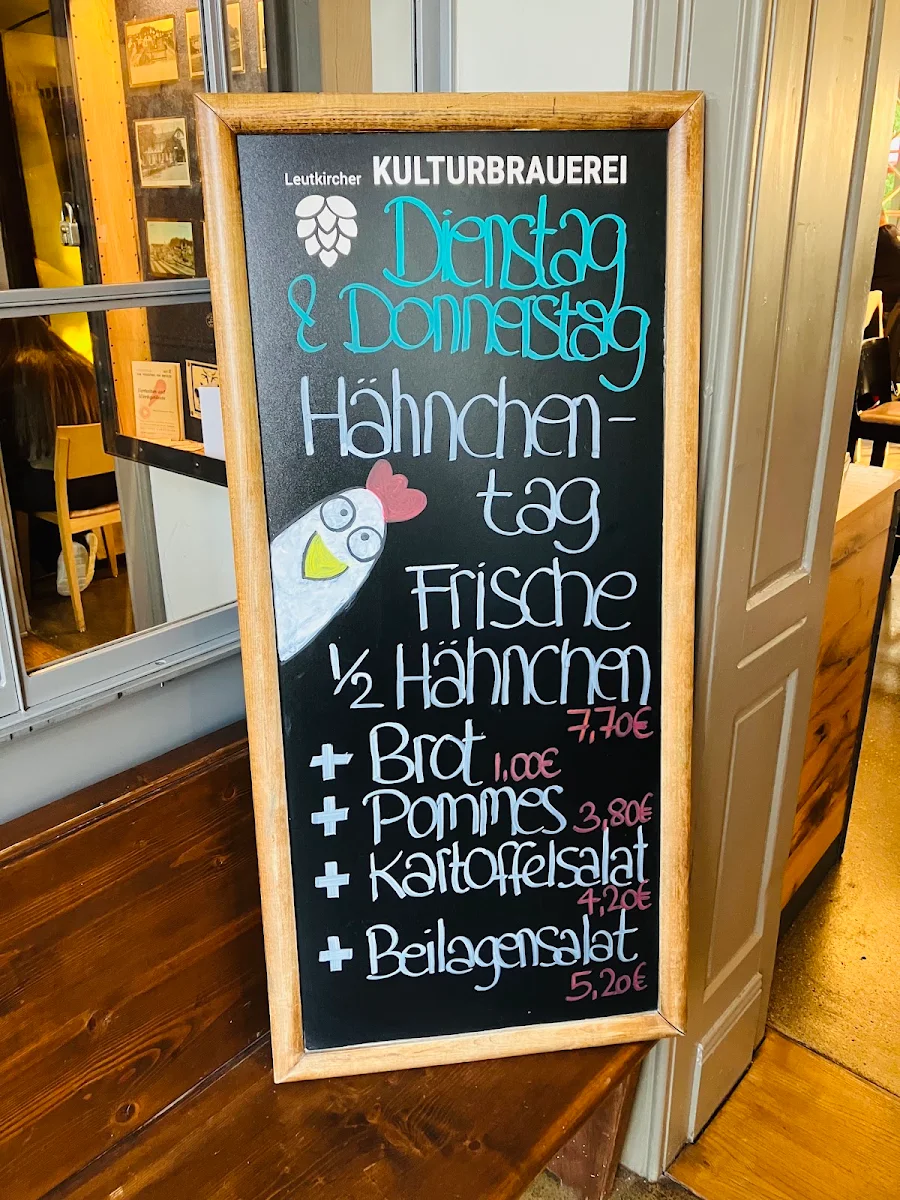 Leutkircher KULTURBRAUEREI
Dienstag
& Donnerstag
Hähnchen-
tag
Frische
1/2 Hähnchen
7,70€
+ Brot 1,00€
+ Pommes 3,80€
+ Kartoffelsalat
4,20€
+ Beilagensalat
5,20€